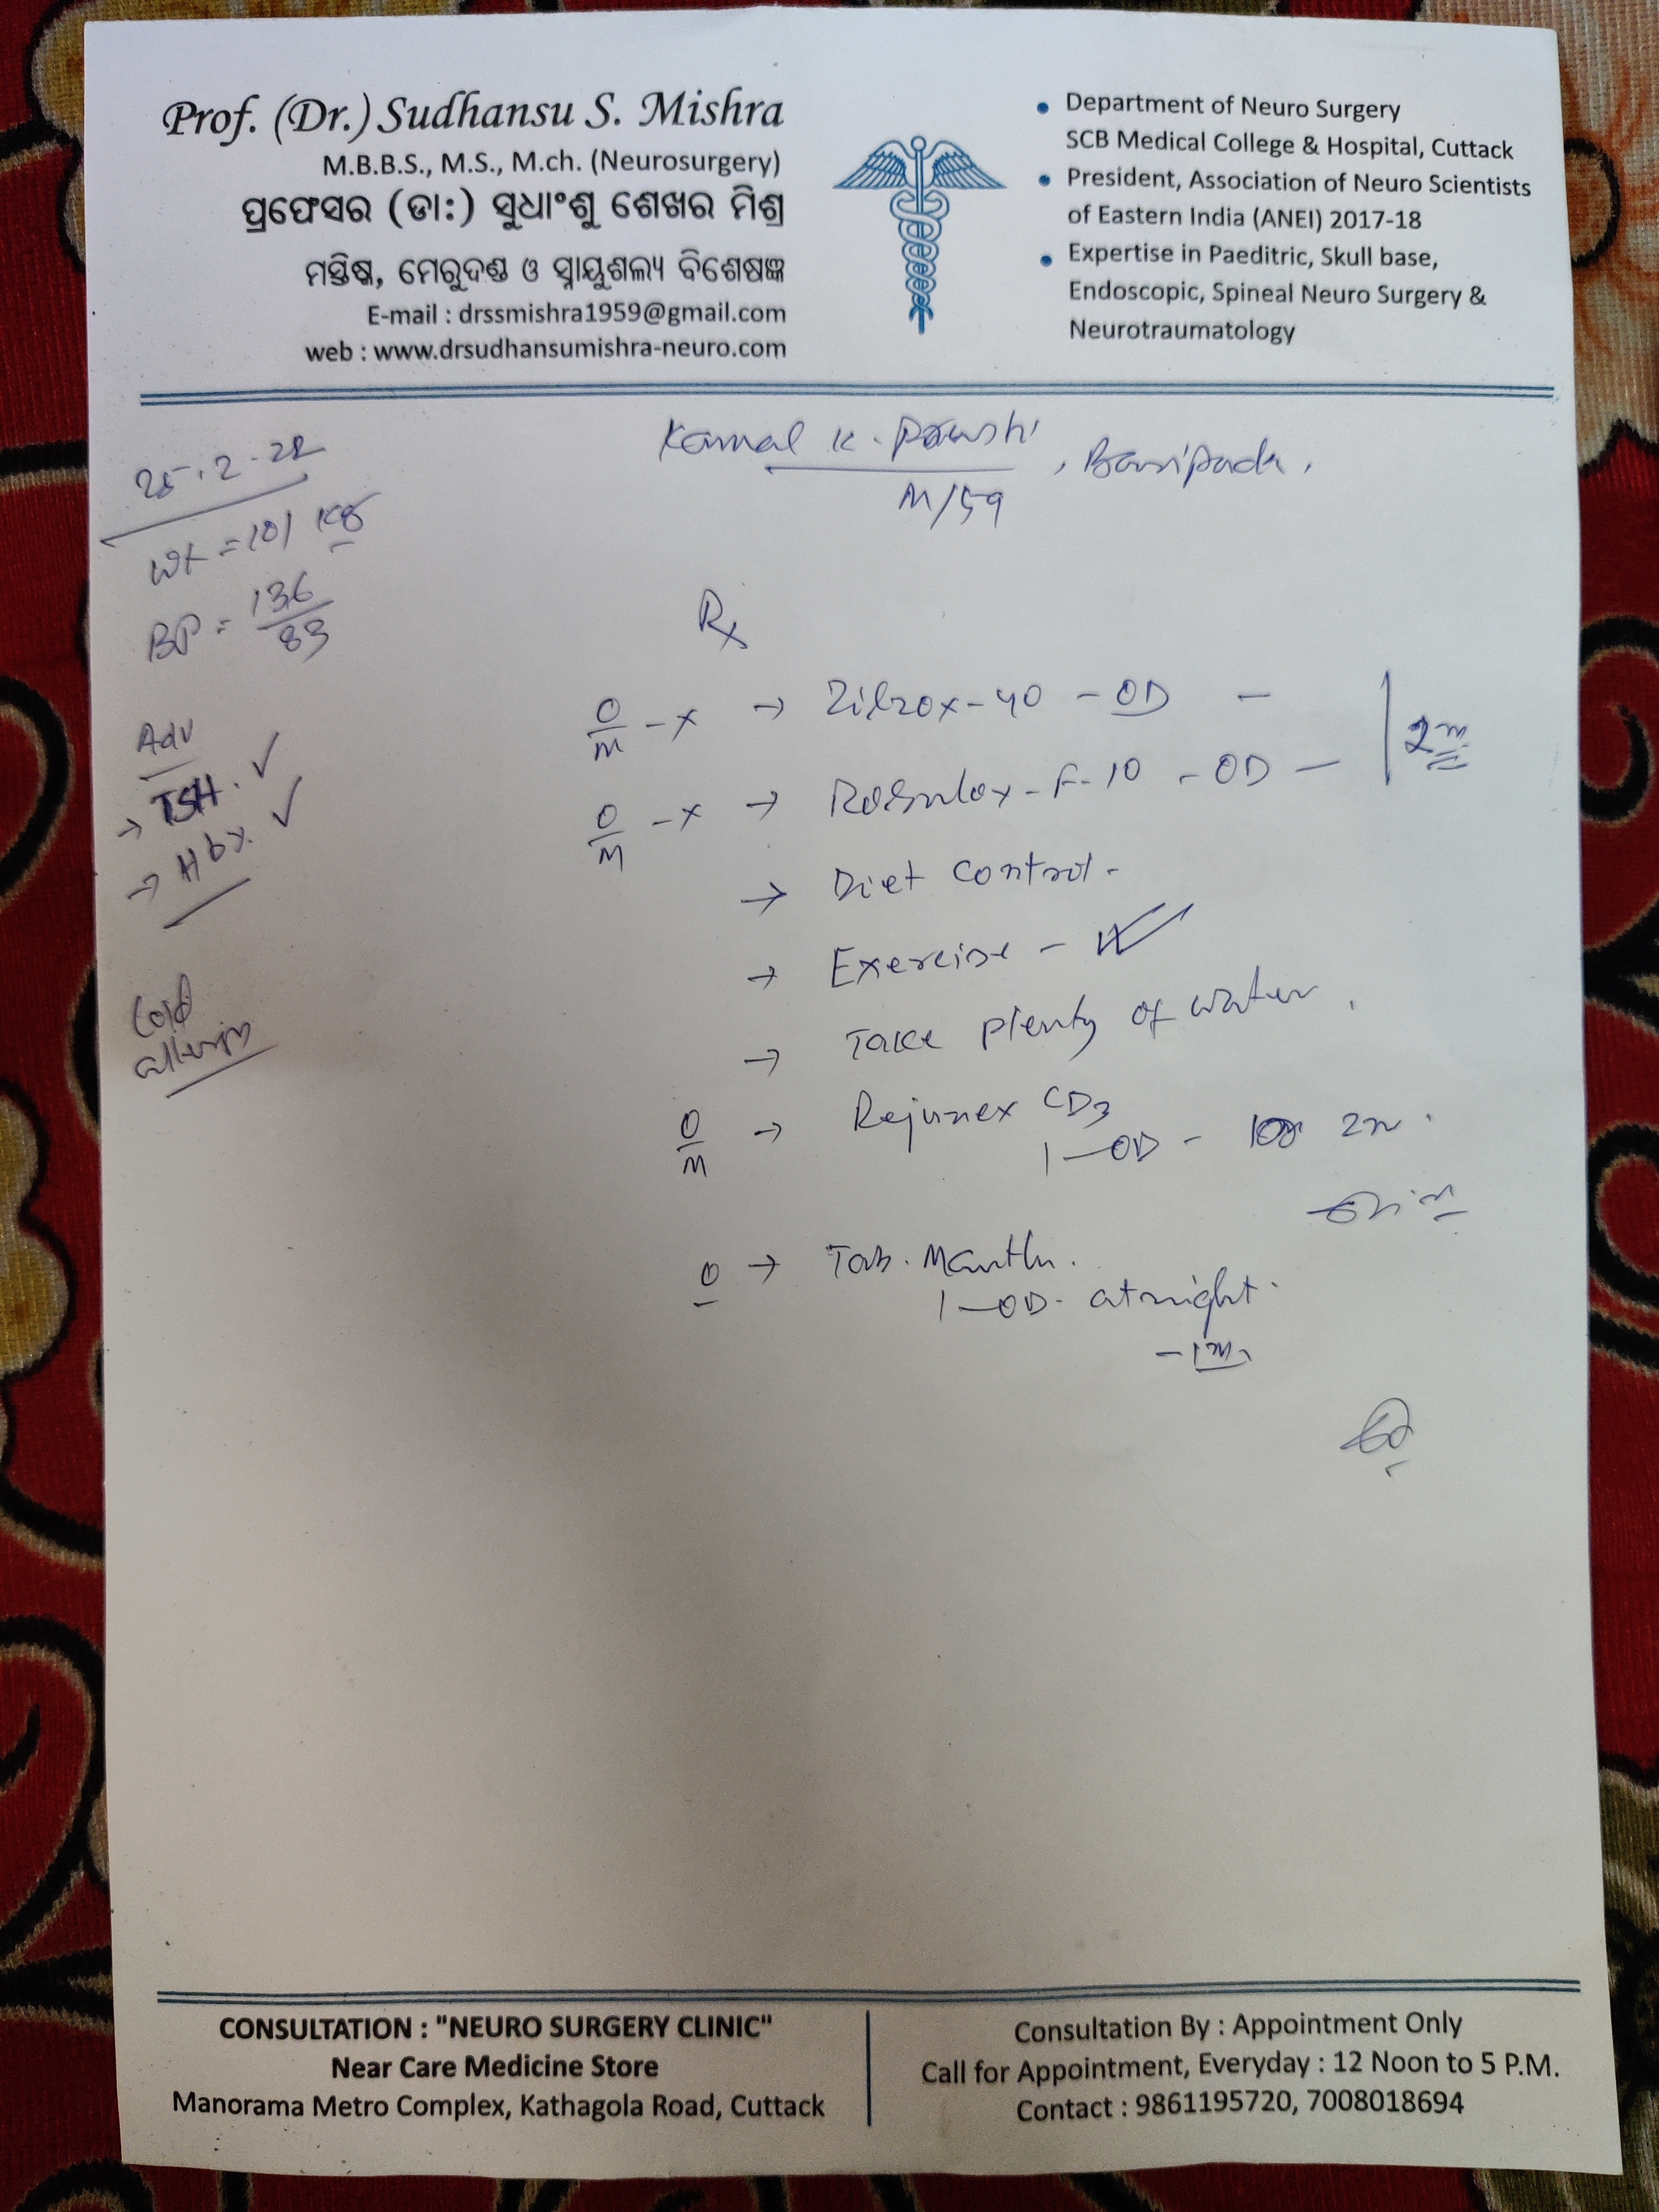 Prof. (Dr.) Sudhansu S. Mishra
M.B.B.S., M.S., M.ch. (Neurosurgery)
ପ୍ରଫେସର (ଡା:) ସୁଧାଂଶୁ ଶେଖର ମିଶ୍ର
ମସ୍ତିଷ୍କ, ମେରୁଦଣ୍ଡ ଓ ସ୍ନାୟୁଶଲ୍ୟ ବିଶେଷଜ୍ଞ
E-mail : drssmishra1959@gmail.com
web : www.drsudhansumishra-neuro.com
Department of Neuro Surgery
SCB Medical College & Hospital, Cuttack
President, Association of Neuro Scientists
of Eastern India (ANEI) 2017-18
Expertise in Paeditric, Skull base,
Endoscopic, Spineal Neuro Surgery &
Neurotraumatology
Kamal K. , Baripada.
M/59
25.2.22
Wt = 101 Kg
BP = 136/83
Adv
→ TSH. ✓
→ Hb%. ✓
Cold
allergy
Rx
O/M - x → Zilzox-40 - OD -
2m
O/M - x → Rosulox-F-10 - OD -
→ Diet control.
→ Exercise - ✓
→ Take plenty of water.
O/M → Rejunex CD3
1-OD - 2m.
O → Tab.
1-OD. at night.
- 1m
CONSULTATION : "NEURO SURGERY CLINIC"
Near Care Medicine Store
Manorama Metro Complex, Kathagola Road, Cuttack
Consultation By : Appointment Only
Call for Appointment, Everyday : 12 Noon to 5 P.M.
Contact : 9861195720, 7008018694